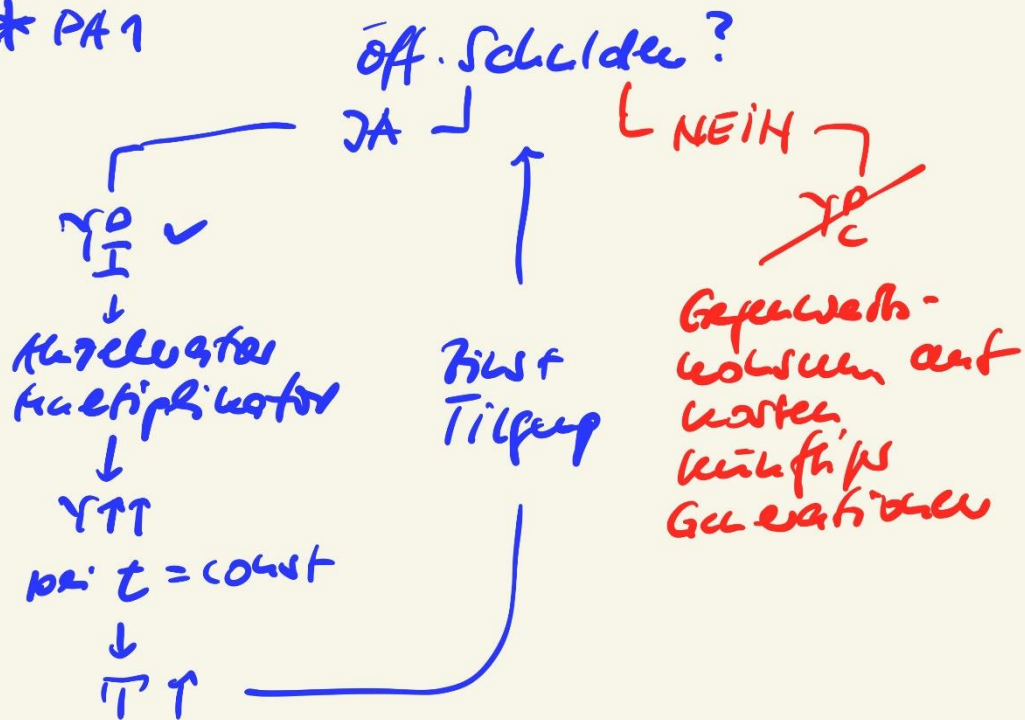 * PA1
öff. Schulden?
JA
NEIN
Y D I ✓
↓
Akzelerator
Multiplikator
↓
Y↑↑
bei t = const
↓
T ↑
Zins +
Tilgung
Y D C
Gegenwarts-
konsum auf
Kosten
künftiger
Generationen